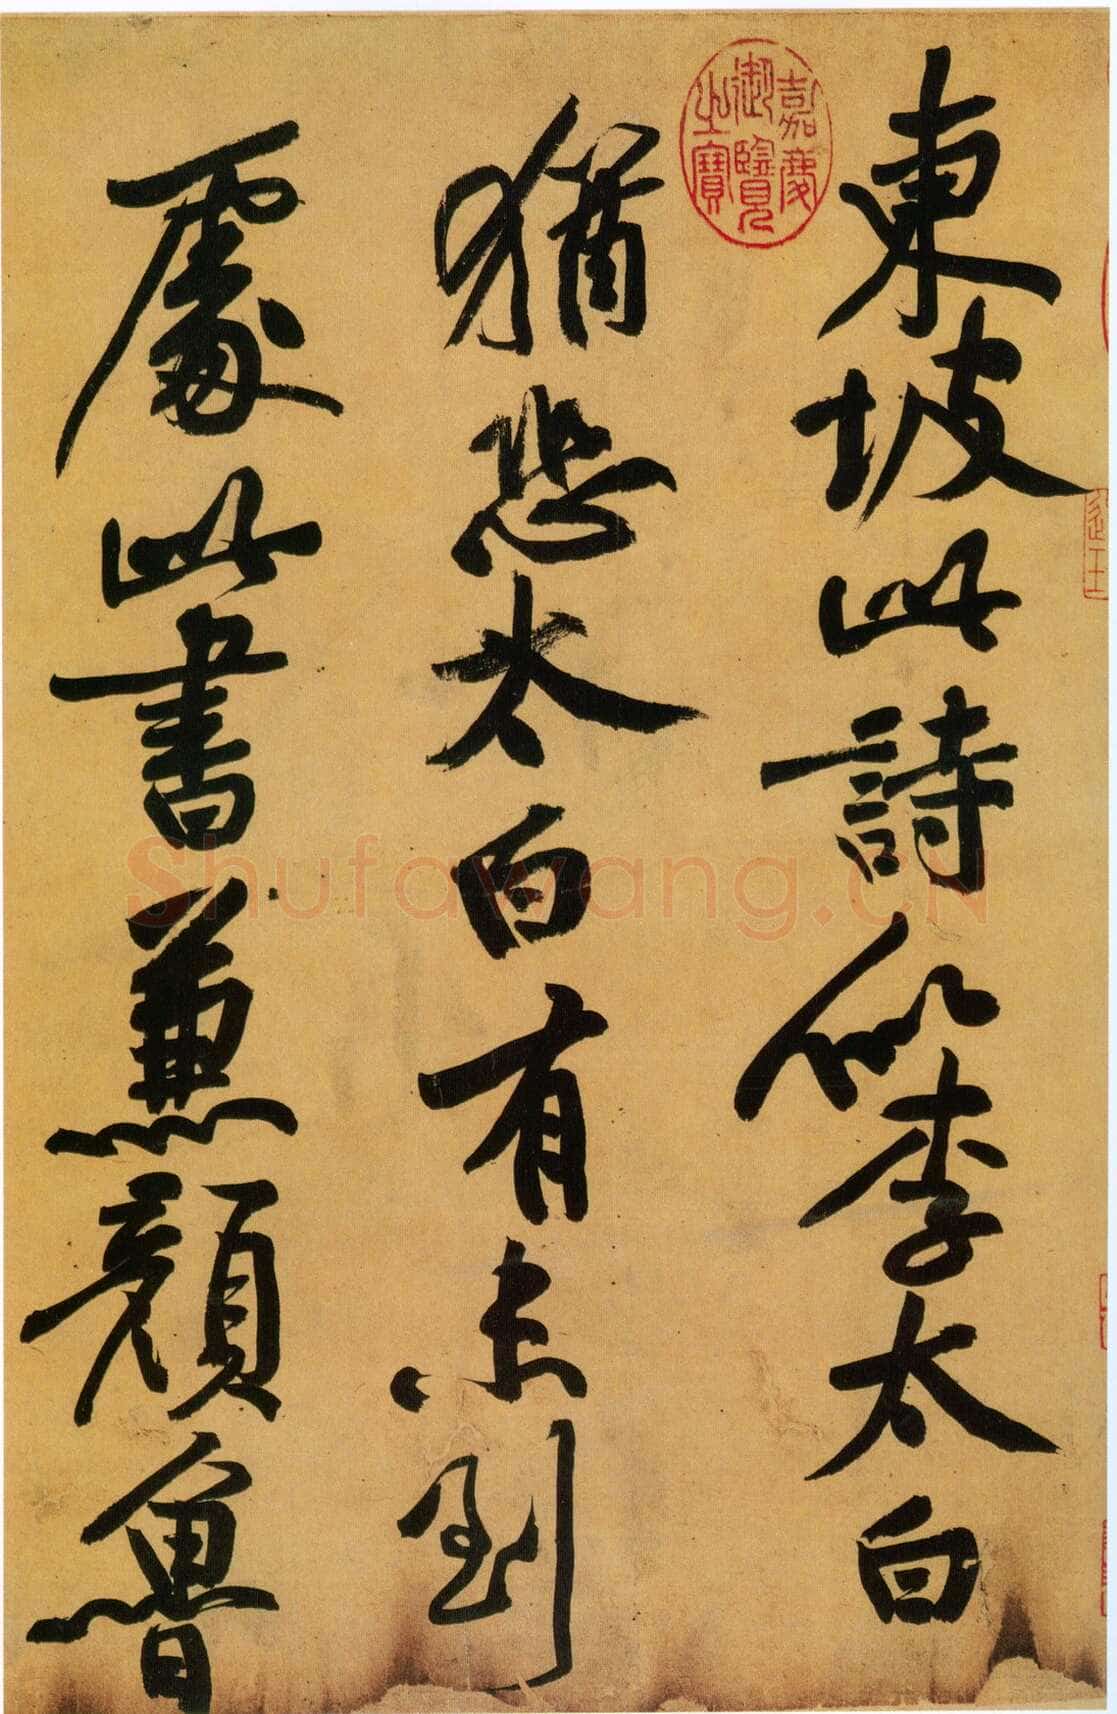 東坡此詩似李太白
猶恐太白有未到
處此書兼顏魯
嘉慶
御覽
之寶
Shufawang.CN